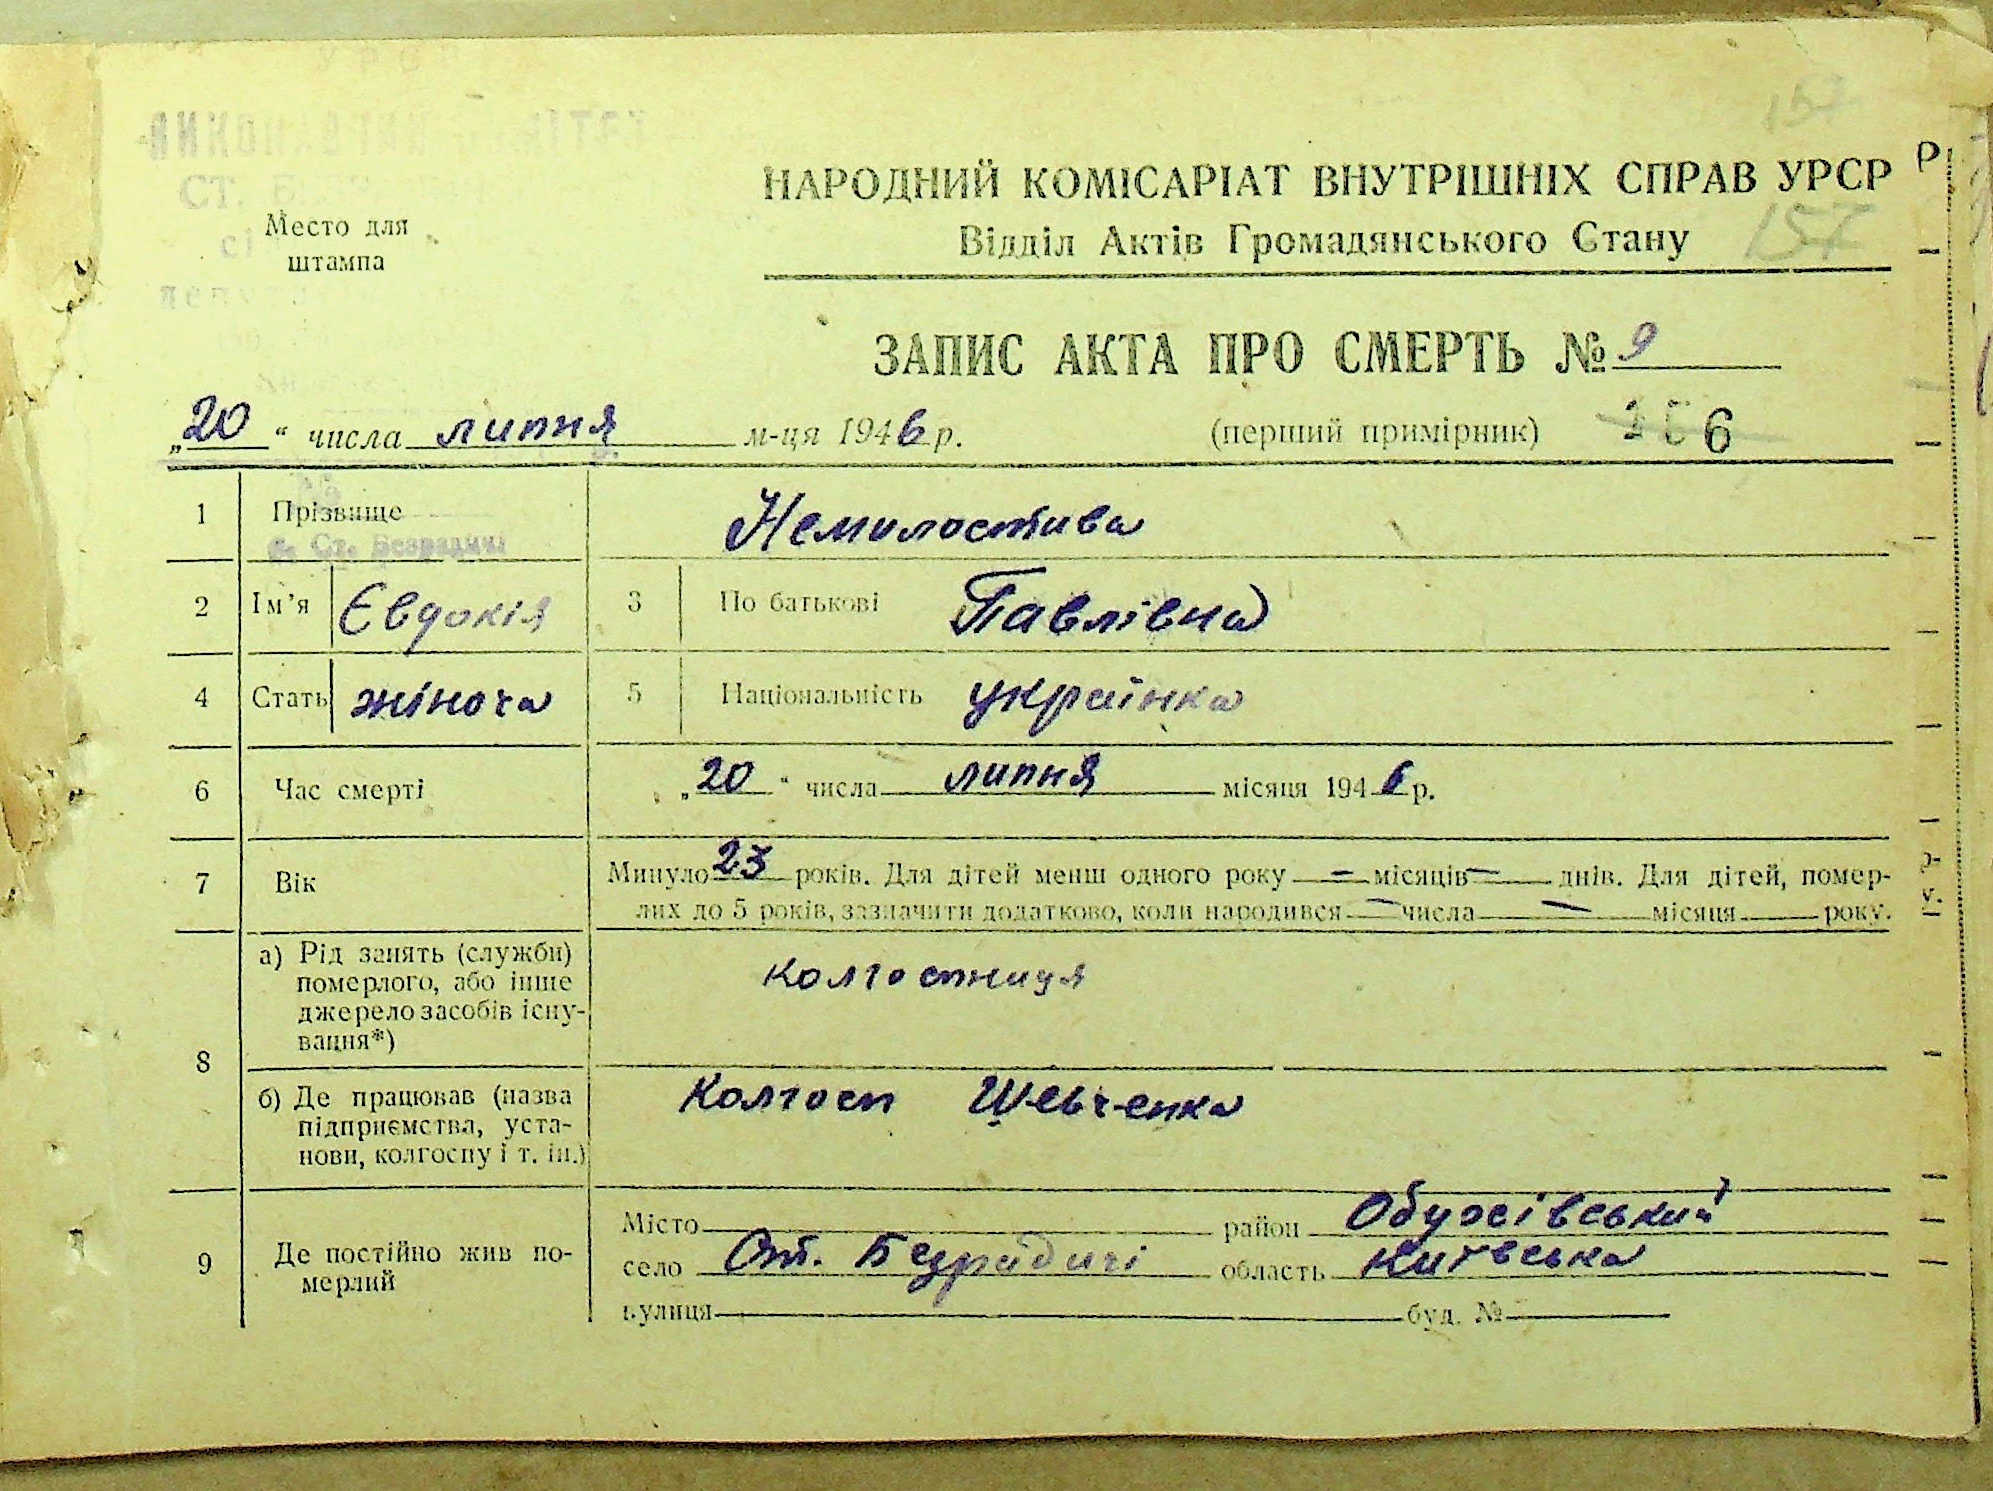 157
НАРОДНИЙ КОМІСАРІАТ ВНУТРІШНІХ СПРАВ УРСР
Место для
штампа
Відділ Актів Громадянського Стану
157
ЗАПИС АКТА ПРО СМЕРТЬ № 9
„20“ числа липня м-ця 1946 р. (перший примірник) 6
1 Прізвище Немилостива
с. Ст. Безрадичі
2 Ім’я Євдокія 3 По батькові Павлівна
4 Стать жіноча 5 Національність українка
6 Час смерті „20“ числа липня місяця 1946 р.
7 Вік Минуло 23 років. Для дітей менш одного року — місяців — днів. Для дітей, помер-
лих до 5 років, зазначити додатково, коли народився — числа — місяця року.
8 а) Рід занять (служби) колгостниця
померлого, або інше
джерело засобів існу-
вання*)
б) Де працював (назва Колгосп Шевченка
підприємства, уста-
нови, колгоспу і т. ін.)
9 Де постійно жив по-
мерлий
Місто район Обухівський
село Ст. Безрадичі область Київська
вулиця буд. №